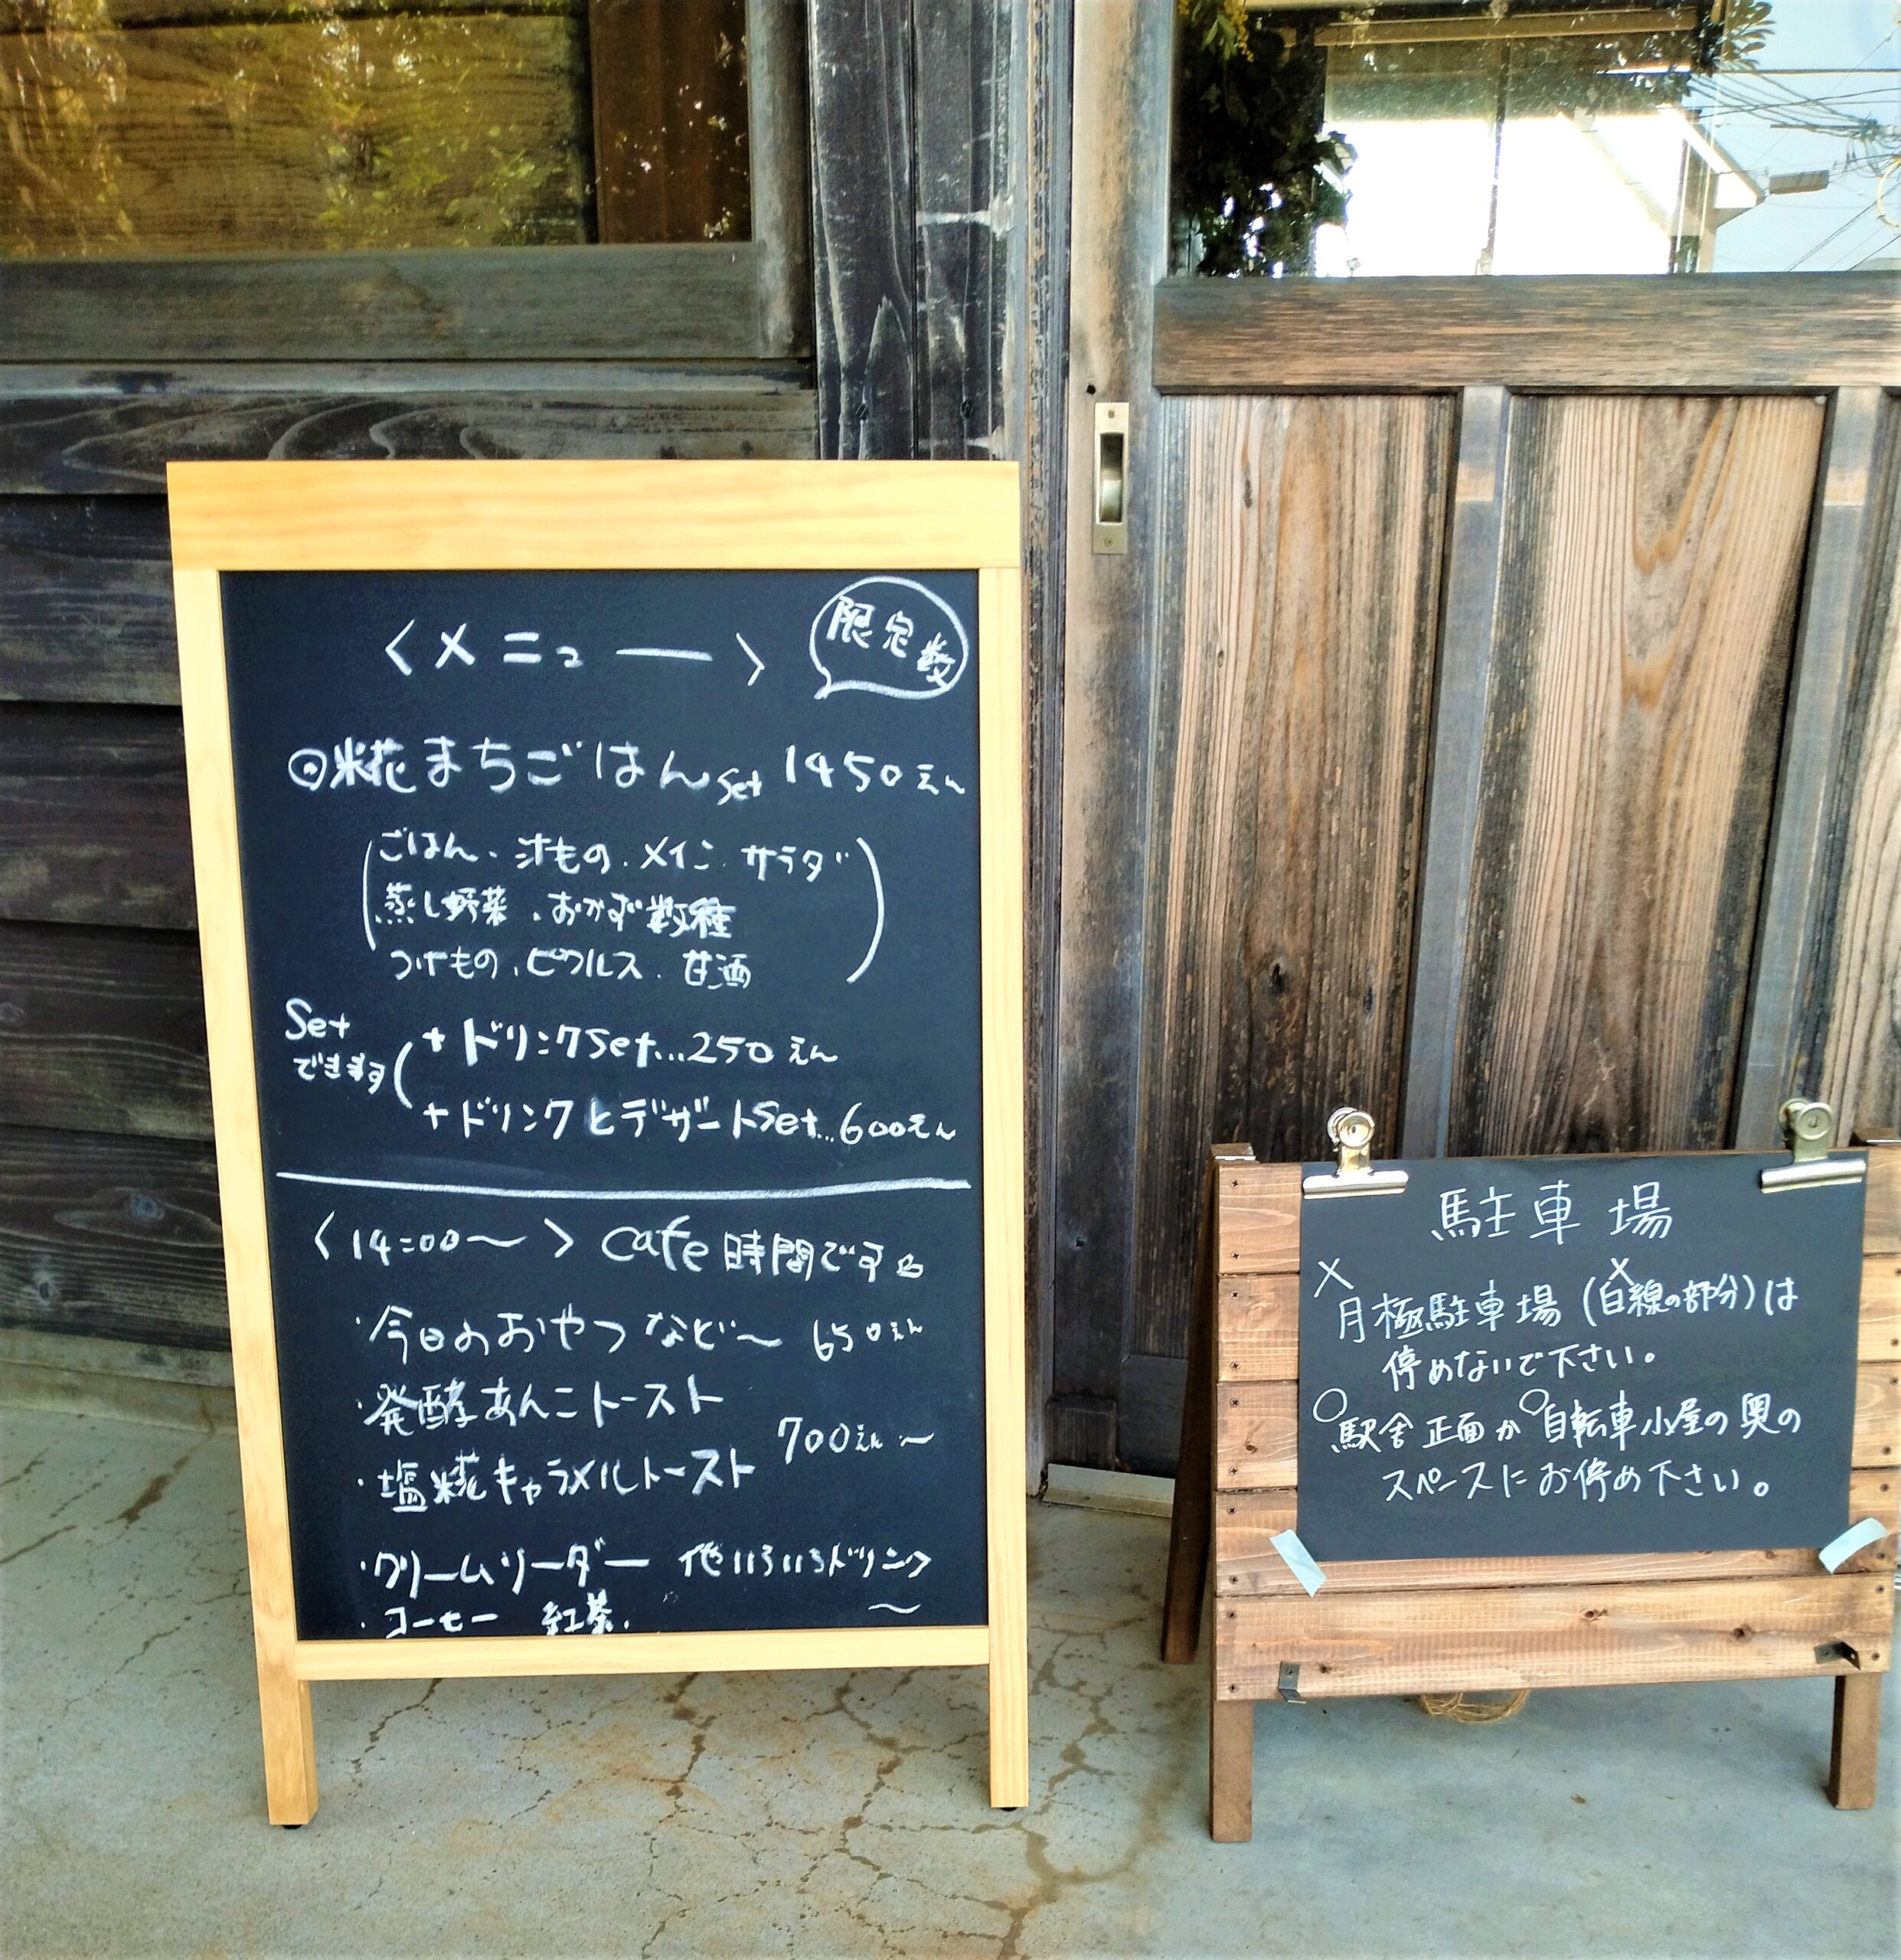 〈メニュー〉
限定数
◎糀まちごはんset 1450えん
(ごはん、汁もの、メイン、サラダ
蒸し野菜、おかず数種
つけもの、ピクルス、甘酒)
Set
できます
+ドリンクset…250えん
+ドリンクとデザートset…600えん
〈14:00〜〉cafe時間です
・今日のおやつなど〜 650えん
・発酵あんこトースト
700えん〜
・塩糀キャラメルトースト
・クリームソーダー 他いろいろドリンク
・コーヒー 紅茶. 〜
駐車場
×月極駐車場(×白線の部分)は
停めないで下さい。
○駅舎正面か○自転車小屋の奥の
スペースにお停め下さい。